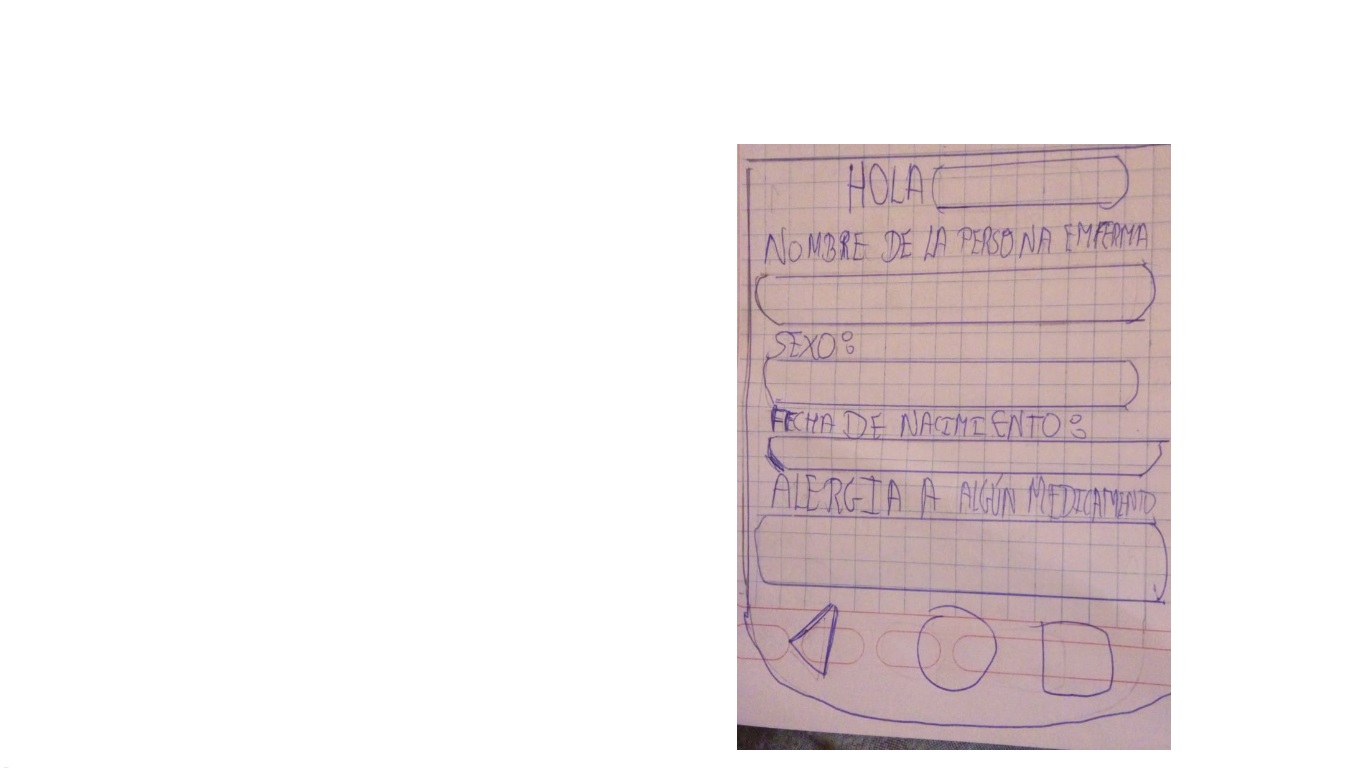 HOLA
NOMBRE DE LA PERSONA EMFERMA
SEXO:
FECHA DE NACIMIENTO:
ALERGIA A ALGÚN MEDICAMENTO